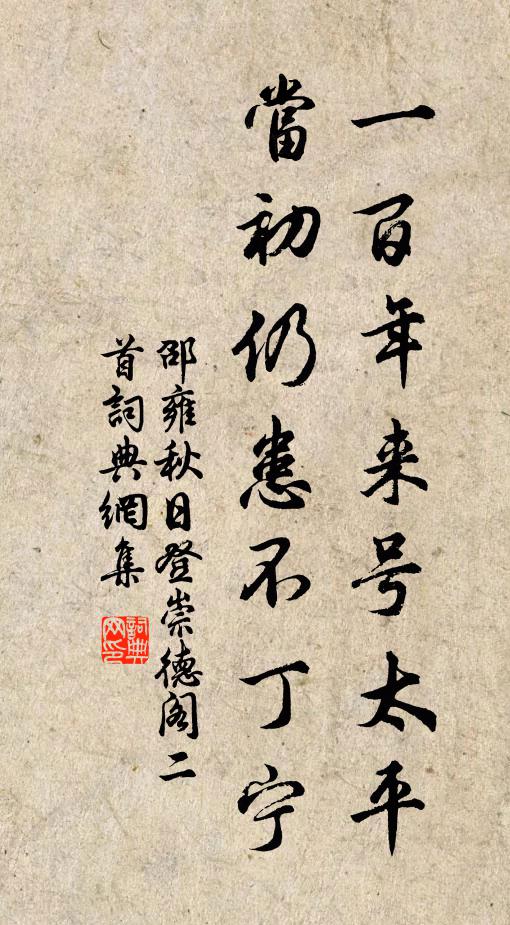 一百年来号太平
當初仍患不丁宁
邵雍秋日登崇德阁二
首詞典網集
詞典
网印